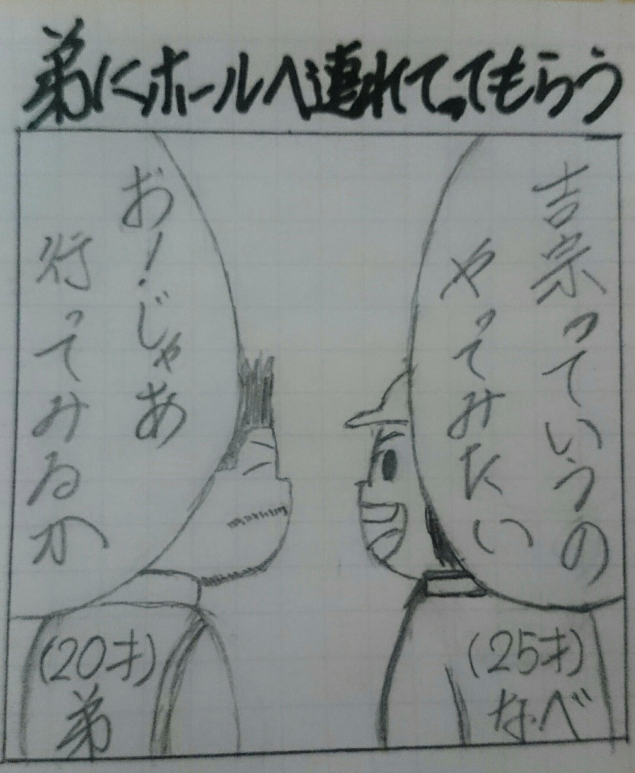 弟にホールへ連れてってもらう
吉宗っていうの
やってみたい
お！じゃあ
行ってみるか
(25才)
なべ
(20才)
弟